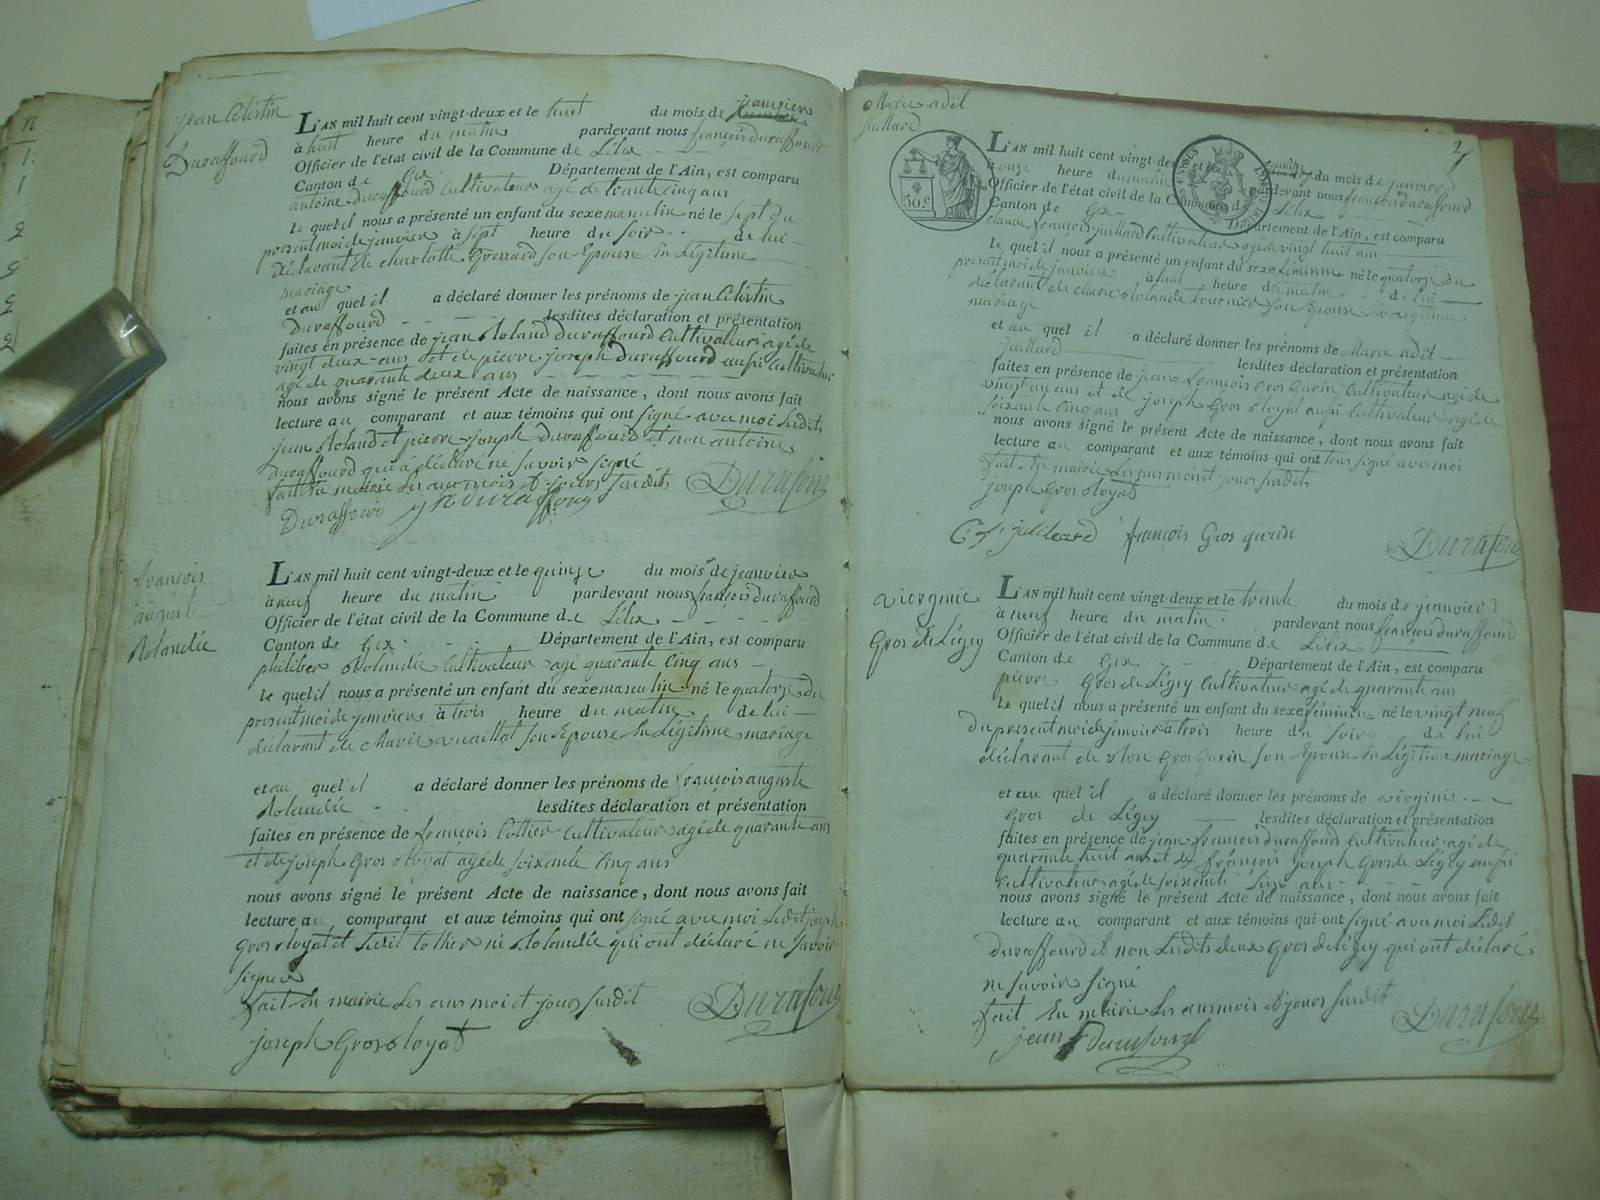 jean Célestin
Duraffourd
L'AN mil huit cent vingt-deux et le huit du mois de janvier
à huit heure du matin pardevant nous françois duraffourd
Officier de l'état civil de la Commune de Lélex
Canton de Gex Département de l'Ain, est comparu
antoine duraffourd Cultivateur agé de trante cinq ans
le quel il nous a présenté un enfant du sexe masculin né le sept du
present moi de janvier à sept heure du soir de lui
déclarant et de charlotte grossard son Epouse En Légitime
mariage
et au quel il a déclaré donner les prénoms de jean Célestin
Duraffourd lesdites déclaration et présentation
faites en présence de jean Roland duraffourd Cultivateur agé de
vingt deux ans et de pierre joseph Duraffourd aussi Cultivateur
agé de quarante deux ans
nous avons signé le présent Acte de naissance, dont nous avons fait
lecture au comparant et aux témoins qui ont signé avec moi Susdits
jean Roland et pierre joseph duraffourd et non antoine
duraffourd qui à déclaré ne Savoir signé
fait En mairie Les an mois et jours Susdits
Durafour
Duraffourd
françois
auguste
Rolandée
L'AN mil huit cent vingt-deux et le quinze du mois de janvier
à neuf heure du matin pardevant nous françois duraffourd
Officier de l'état civil de la Commune de Lélex
Canton de Gex Département de l'Ain, est comparu
philiber Rolandée Cultivateur agé quarante Cinq ans
le quel il nous a présenté un enfant du sexe masculin né le quatorze du
present moi de janvier à trois heure du matin de lui
déclarant et de marie vuaillat son Epouse En Légitime mariage
et au quel il a déclaré donner les prénoms de françois auguste
Rolandée lesdites déclaration et présentation
faites en présence de françois Cottier Cultivateur agé de quarante ans
et de joseph Gros Royat agé de Soixante Cinq ans
nous avons signé le présent Acte de naissance, dont nous avons fait
lecture au comparant et aux témoins qui ont signé avec moi Ledit joseph
Gros Royat et ni Rolandée qui ont déclaré ne Savoir
signer
fait En mairie Les ans moi et jours Susdit
Durafour
joseph Gros Royat
Marie adil
juillard
2
50.c
L'AN mil huit cent vingt-deux et le du mois de janvier
à onze heure du matin pardevant nous françois duraffourd
Officier de l'état civil de la Commune de Lélex
Canton de Gex Département de l'Ain, est comparu
claude françois juillard Cultivateur agé de vingt huit ans
le quel il nous a présenté un enfant du sexe féminine né le quatorze du
present moi de janvier à huit heure du matin de lui
déclarant et de marie Rolande tournier son Epouse En Légitime
mariage
et au quel il a déclaré donner les prénoms de Marie adil
juillard lesdites déclaration et présentation
faites en présence de jean françois Gros Gurin Cultivateur agé de
vingt un ans et de joseph Gros Royat aussi Cultivateur agé de
Soixante Cinq ans
nous avons signé le présent Acte de naissance, dont nous avons fait
lecture au comparant et aux témoins qui ont tous signé avec moi
fait En mairie Les ans mois et jours Susdits
joseph Gros Royat
C. f. juilleard françois Gros gurin
Durafour
viergenie
Gros de Légey
L'AN mil huit cent vingt-deux et le trente du mois de janvier
à neuf heure du matin pardevant nous françois duraffourd
Officier de l'état civil de la Commune de Lélex
Canton de Gex Département de l'Ain, est comparu
pierre Gros de Légey Cultivateur agé de quarante ans
le quel il nous a présenté un enfant du sexe féminin né le vingt neuf
du present moi de janvier à trois heure du soir de lui
déclarant et de Rose Gros Gurin son Epouse En Légitime mariage
et au quel il a déclaré donner les prénoms de viergenie
Gros de Légey lesdites déclaration et présentation
faites en présence de jean françois duraffourd Cultivateur agé de
quarante huit ans et de françois joseph Gros de Légey aussi
Cultivateur agé de Soixante Seize ans
nous avons signé le présent Acte de naissance, dont nous avons fait
lecture au comparant et aux témoins qui ont signé avec moi Ledit
duraffourd et non Lesdits deux Gros de Légey qui ont déclaré
ne Savoir signé
fait En mairie Les ans mois et jours Susdit
Durafour
jean Durafourd